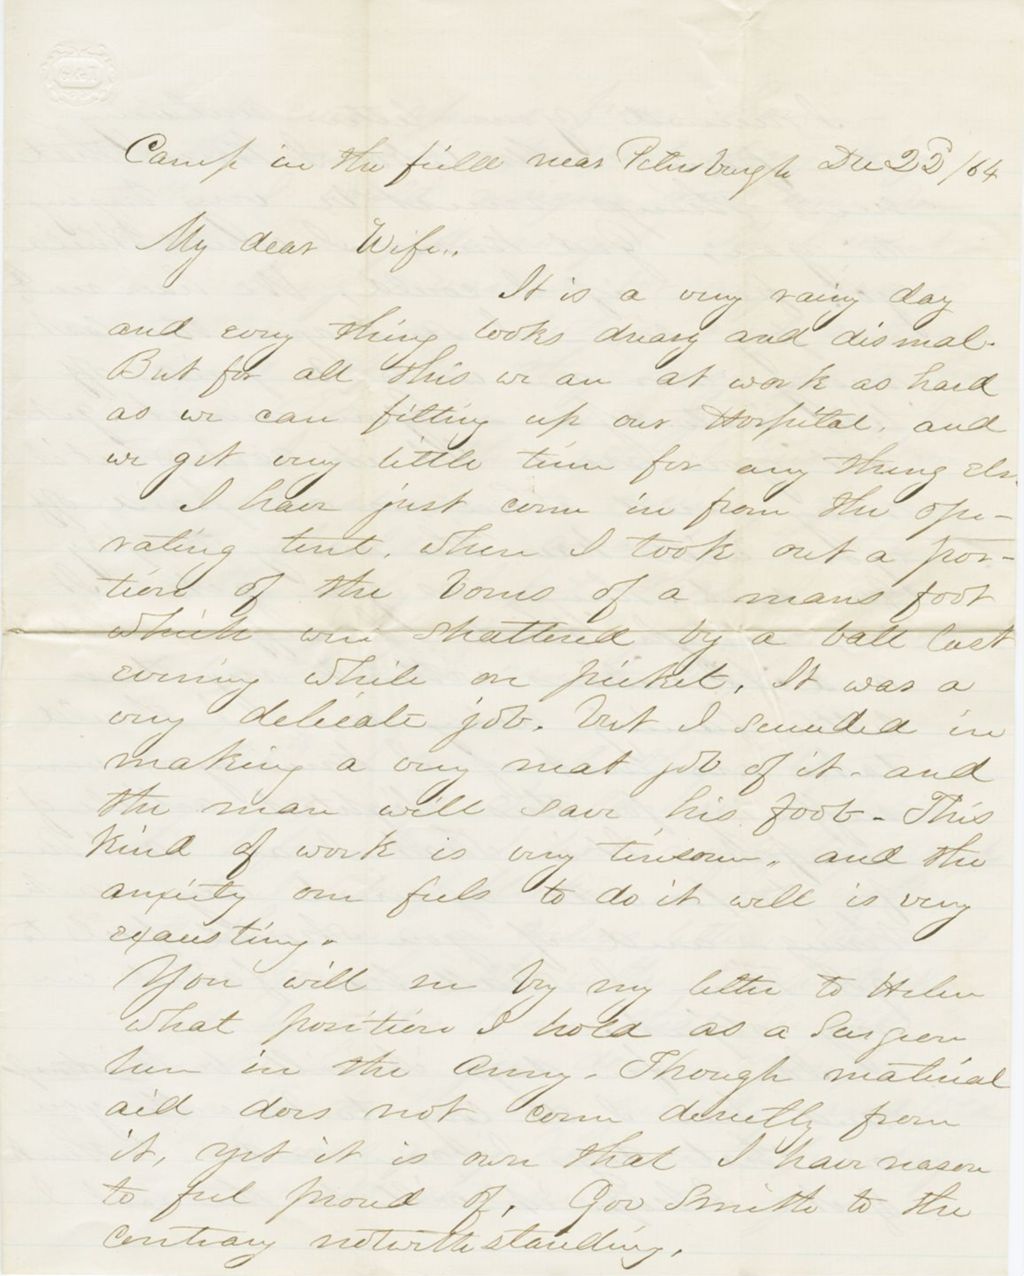 Camp in the field near Petersburgh Dec 22d/64
My dear Wife..
It is a very rainy day
and every thing looks dreary and dismal.
But for all this we are at work as hard
as we can fitting up our Hospital, and
we get very little time for any thing else.
I have just come in from the ope-
rating tent, where I took out a por-
tion of the bones of a mans foot
which were shattered by a ball last
evening while on picket. It was a
very delicate job. but I succeeded in
making a very neat job of it. and
the man will save his foot - This
kind of work is very tiresome. and the
anxiety one feels to do it well is very
exausting.
You will see by my letter to Helen
what position I hold as a Surgeon
here in the Army. Though material
aid does not come directly from
it, yet it is one that I have reason
to feel proud of, Gov Smith to the
contrary notwithstanding.